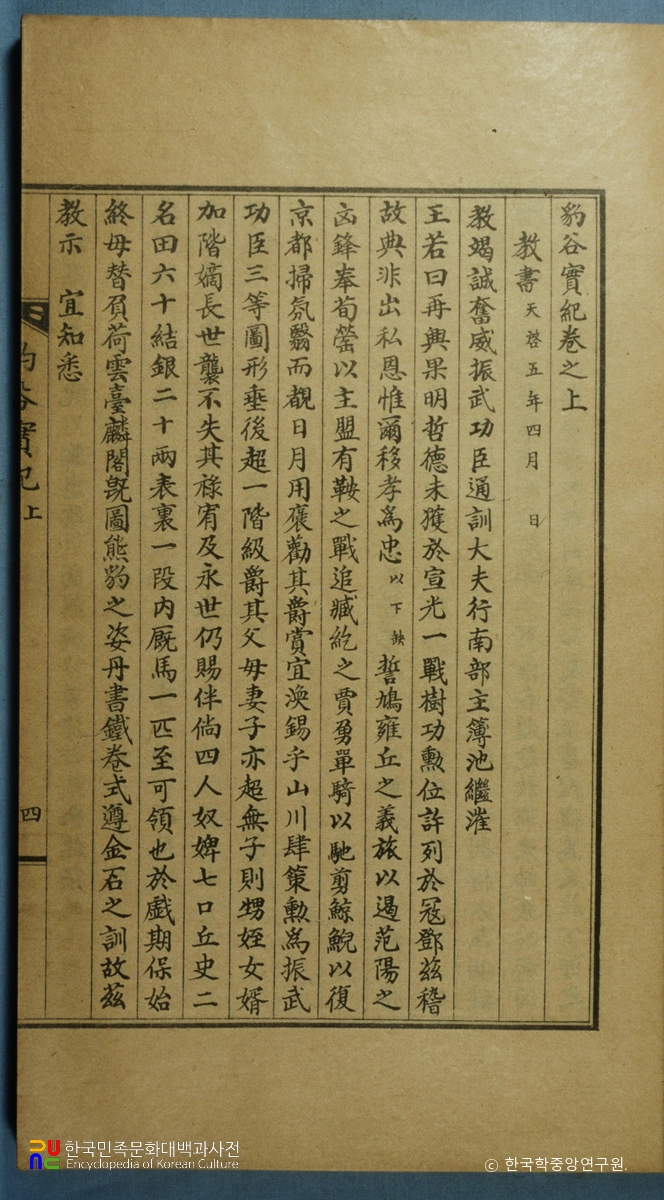 豹谷實紀卷之上
教書 天啓五年四月 日
教竭誠奮威振武功臣通訓大夫行南部主簿池繼漼
王若曰再興果明哲德未獲於宣光一戰樹功勳位許列於冦鄧茲稽
故典非出私恩惟爾移孝爲忠 以下缺 誓鳩雍丘之義旅以遏范陽之
凶鋒奉荀罃以主盟有鞍之戰追臧紇之賈勇單騎以馳剪鯨鯢以復
京都掃氛翳而覩日月用褒勸其爵賞宜渙錫乎山川肆策勳爲振武
功臣三等圖形垂後超一階級爵其父母妻子亦超無子則甥姪女婿
加階嫡長世襲不失其祿宥及永世仍賜伴倘四人奴婢七口丘史二
名田六十結銀二十兩表裏一段內厩馬一匹至可領也於戲期保始
終毋替負荷雲臺麟閣旣圖熊豹之姿丹書鐵卷式遵金石之訓故茲
教示 宜知悉
豹谷實紀 上
四
한국민족문화대백과사전
Encyclopedia of Korean Culture
ⓒ 한국학중앙연구원.